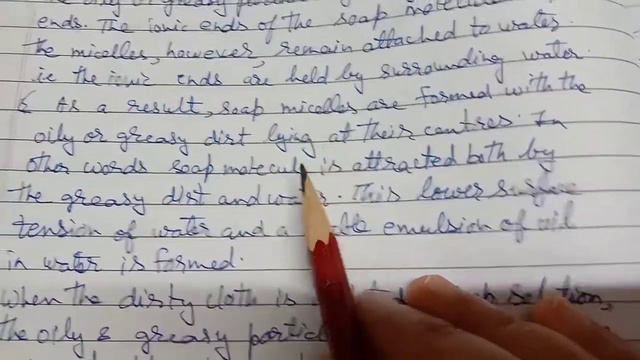 ends. The ionic ends of the soap
the micelles, however, remain attached to water
ie the ionic ends are held by surrounding water.
As a result, soap micelles are formed with the
oily or greasy dist lying at their centres. In
other words soap molecule is attracted both by
the greasy dist and This lower
tension of water and a emulsion of oil
in water is formed.
When the dirty cloth is
the oily & greasy